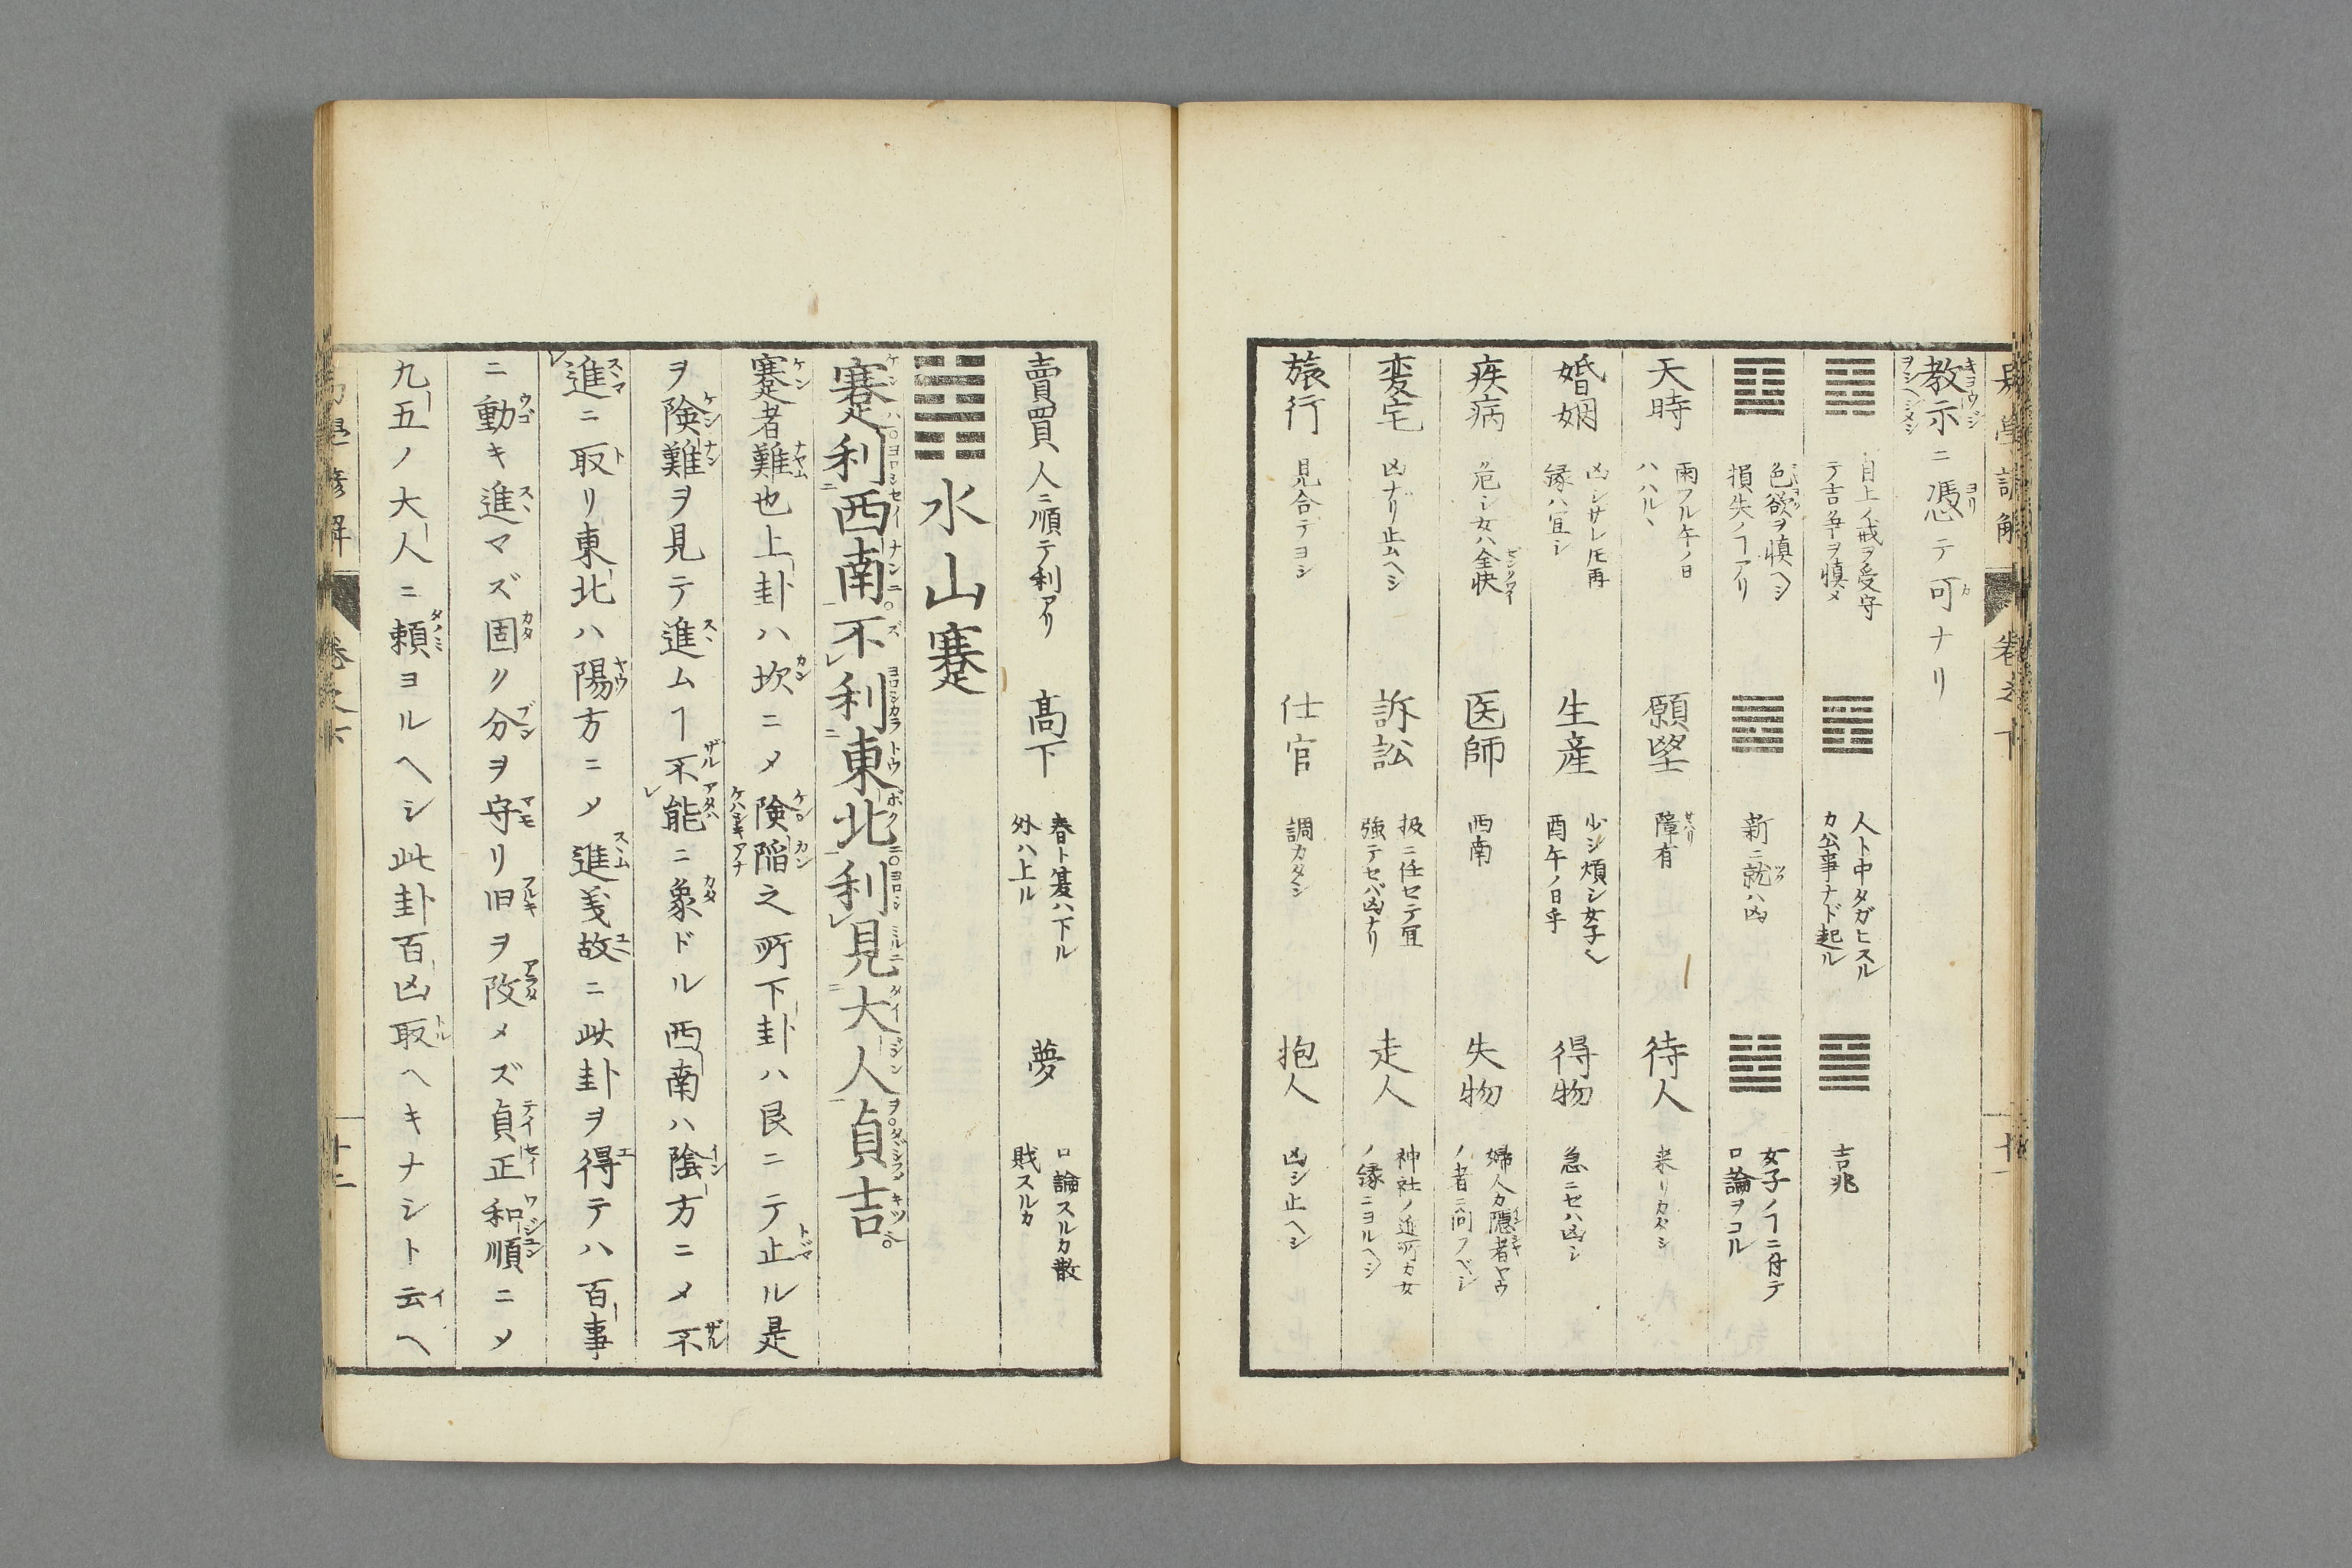 教示ニ憑テ可ナリ
目上ノ戒ヲ受守
テ吉争ヲ慎メ
人ト中タガヒスル
カ公事ナド起ル
吉兆
色欲ヲ慎ヘシ
損失ノヿアリ
新ニ就ハ凶
女子ノヿニ付テ
口論ヲコル
天時
雨フル午ノ日
ハハルヽ
願望
障有
待人
来リカタシ
婚姻
凶シサレ𪜈再
縁ハ宜シ
生産
少シ煩シ女子
酉午ノ日乎
得物
急ニセハ凶シ
疾病
危シ女ハ全快
医師
西南
失物
婦人カ隠者ヤウ
ノ者ニ問フベシ
変宅
凶ナリ止ムヘシ
訴訟
扱ニ任セテ宜
強テセバ凶ナリ
走人
神社ノ近所カ女
ノ縁ニヨルヘシ
旅行
見合テヨシ
仕官
調カタシ
抱人
凶シ止ヘシ
賣買
人ニ順テ利アリ
高下
春ト夏ハ下ル
外ハ上ル
夢
口論スルカ散
財スルカ
水山蹇
蹇利西南不利東北利見大人貞吉
蹇者難也上卦ハ坎ニメ険陥之所下卦ハ艮ニテ止ル是
ヲ険難ヲ見テ進ムヿ不能ニ象ドル西南ハ陰方ニメ不
進ニ取リ東北ハ陽方ニメ進義故ニ此卦ヲ得テハ百事
ニ動キ進マズ固ク分ヲ守リ旧ヲ改メズ貞正和順ニメ
九五ノ大人ニ頼ヨルヘシ此卦百凶取ヘキナシト云ヘ